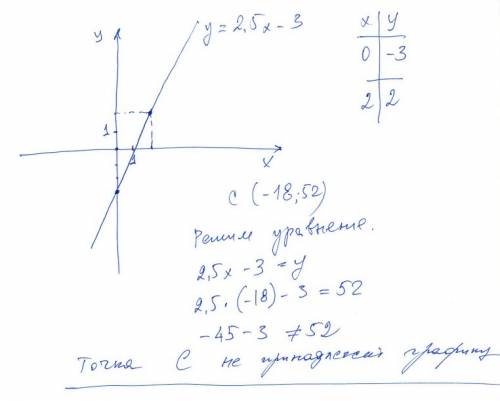 y = 2,5x - 3
x | y
0 | -3
2 | 2
y
1
1
x
C (-18; 52)
Решим уравнение.
2,5x - 3 = y
2,5 · (-18) - 3 = 52
-45 - 3 ≠ 52
Точка C не принадлежит графику